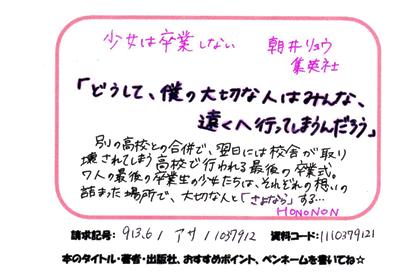 少女は卒業しない 朝井リョウ
集英社
「どうして、僕の大切な人はみんな、
遠くへ行ってしまうんだろう」
別の高校との合併で、翌日には校舎が取り
壊されてしまう高校で行われる最後の卒業式。
7人の最後の卒業生の少女たちは、それぞれの想いの
詰まった場所で、大切な人と「さよなら」する…
HONONON
請求記号: 913.6 / アサ / 1037912 資料コード: 1110379121
本のタイトル・著者・出版社、おすすめポイント、ペンネームを書いてね☆